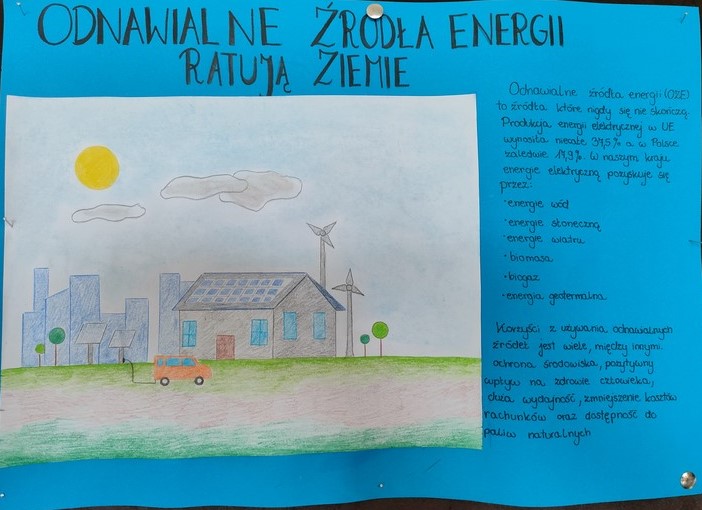 ODNAWIALNE ŹRÓDŁA ENERGII
RATUJĄ ZIEMIE
Odnawialne źródła energii (OZE)
to źródła które nigdy się nie skończą.
Produkcja energii elektrycznej w UE
wynosiła niecałe 37,5% a w Polsce
zaledwie 17,9%. W naszym kraju
energie elektryczną pozyskuje się
przez:
· energie wód
· energie słoneczną
· energie wiatru
· biomasa
· biogaz
· energia geotermalna
Korzyści z używania odnawialnych
źródeł jest wiele, między innymi:
ochrona środowiska, pozytywny
wpływ na zdrowie człowieka,
duża wydajność, zmniejszenie kosztów
rachunków oraz dostępność do
paliw naturalnych